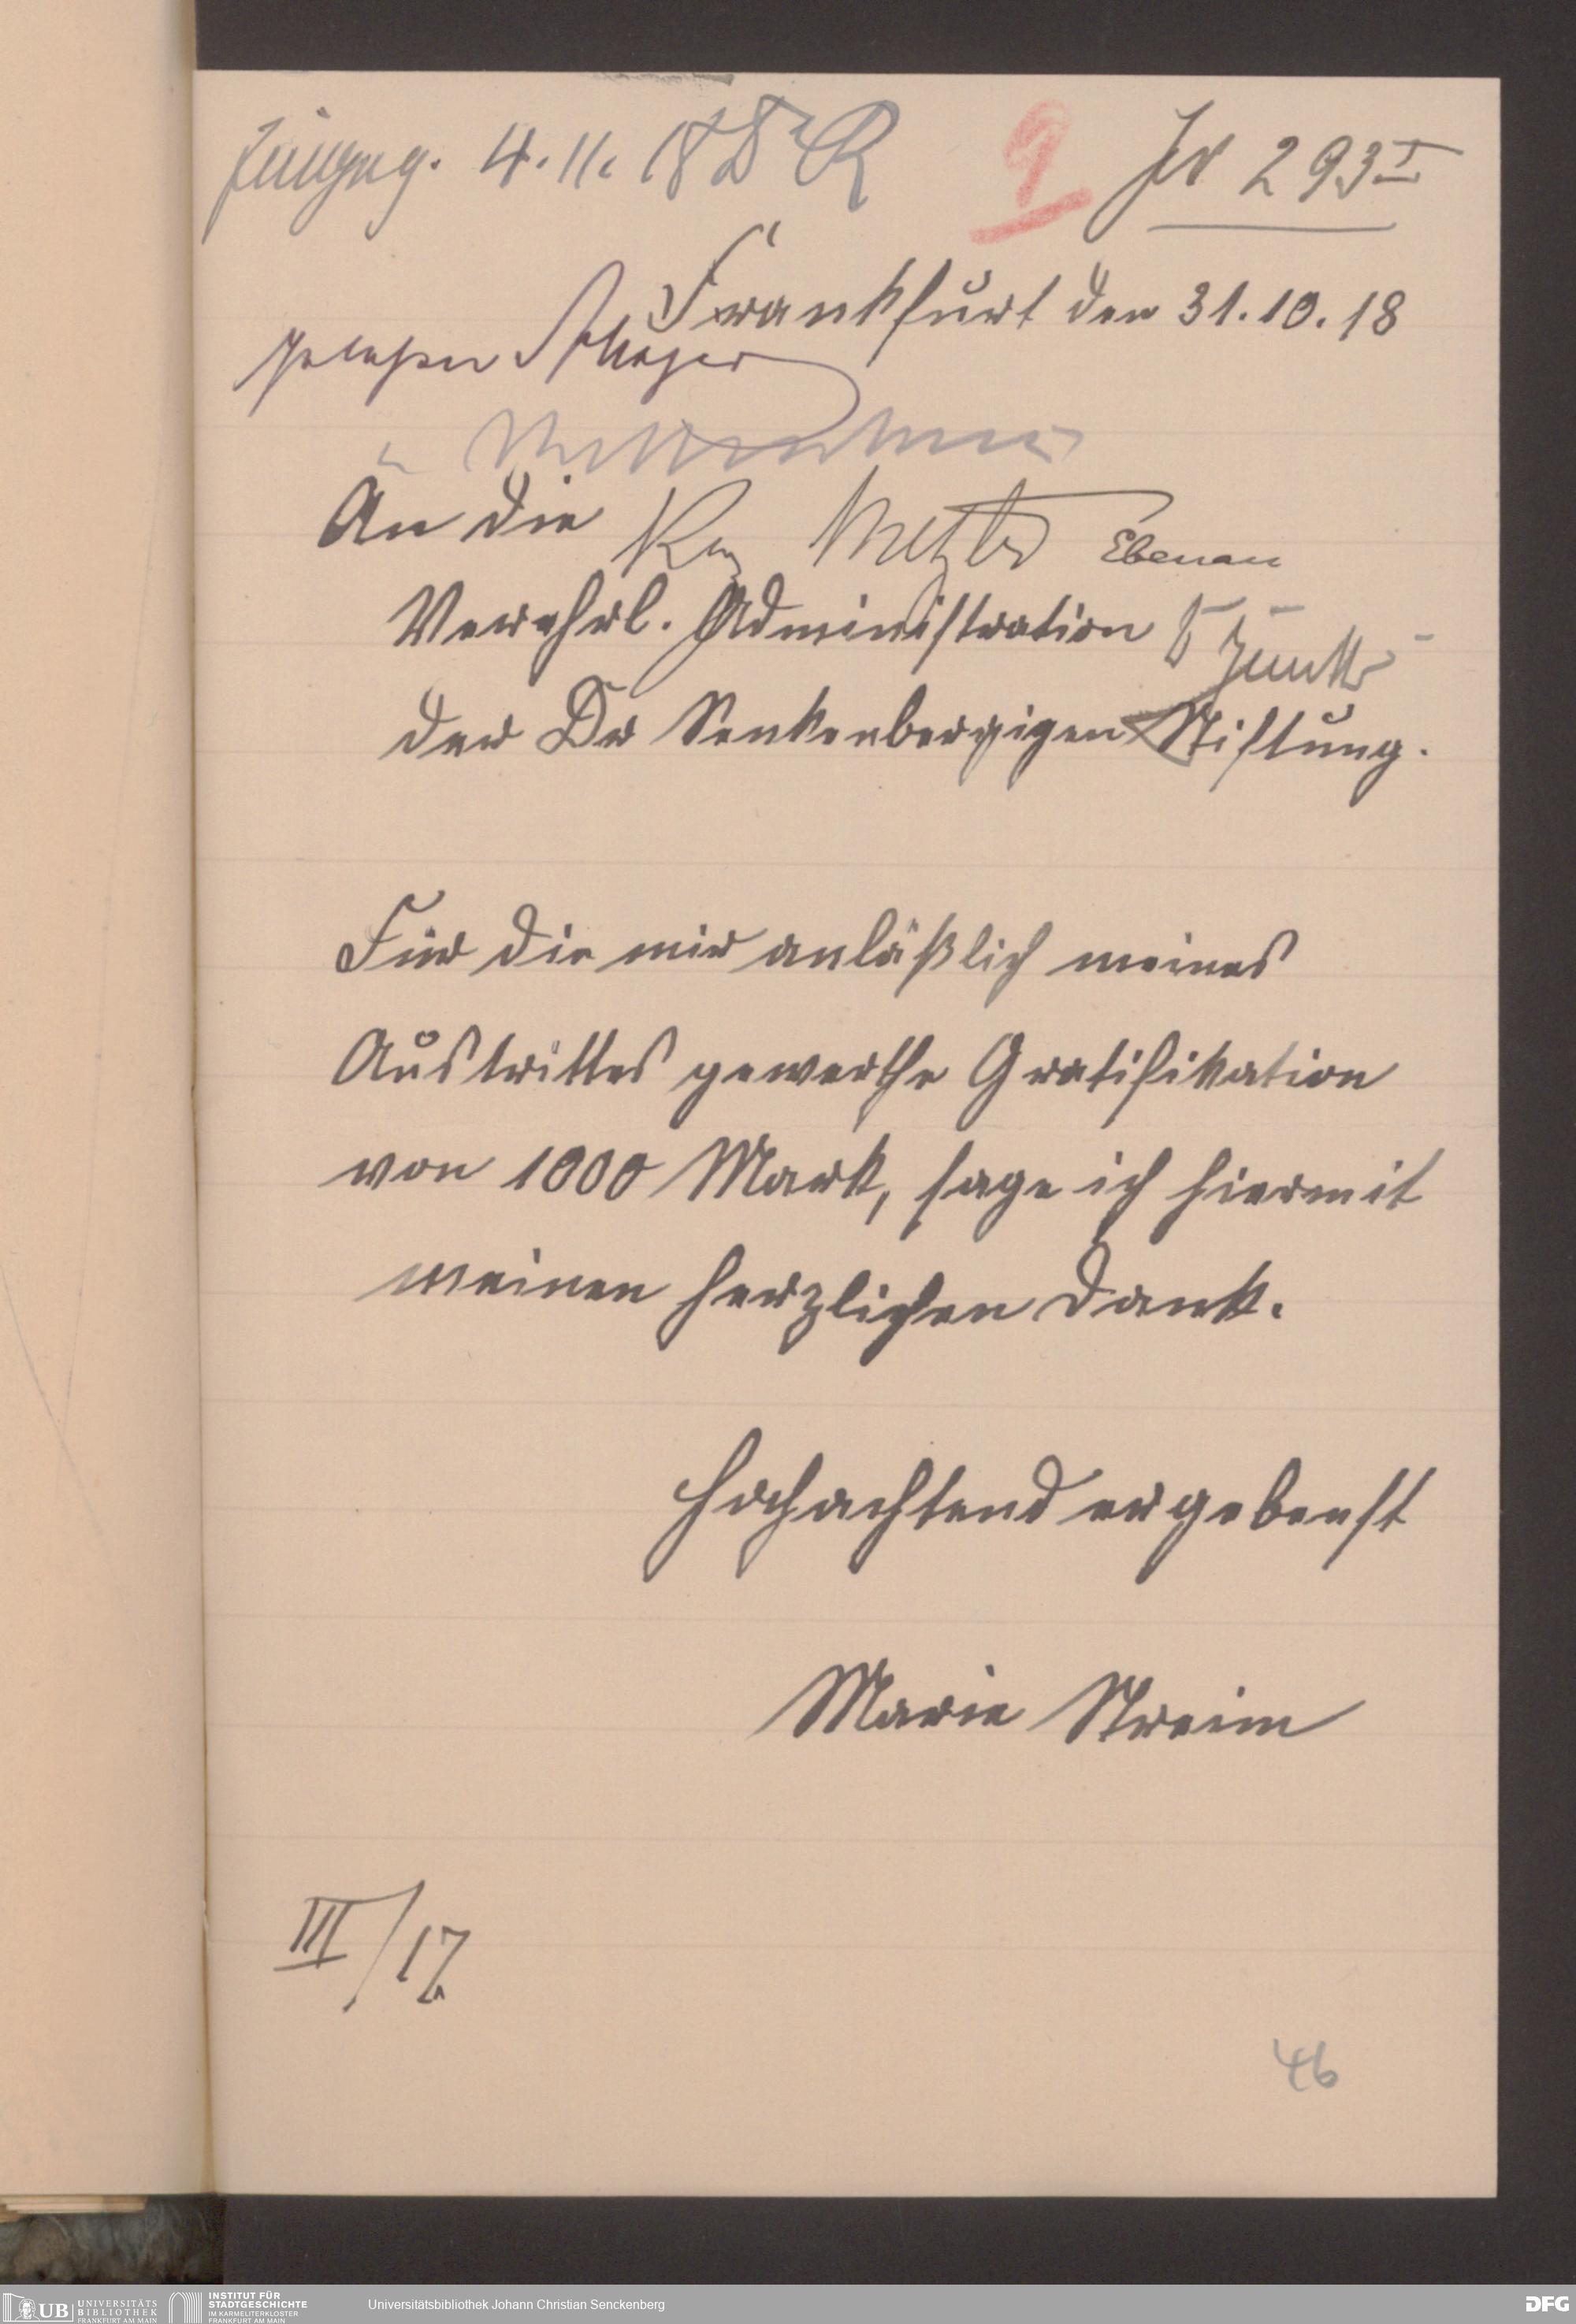 Eingng. 4. 11. 18 Dr R
9
JN 293 I
Frankfurt den 31.10.18
gelesen
An die
Metzler Ebenau
Verehrl. Administration
der Dr Senkenbergigen Stiftung.
Für die mir anläßlich meines
Austrittes gewerthe Gratifikation
von 1000 Mark, sage ich hiermit
meinen herzlichen Dank.
Hochachtend ergebenst
Marie Streim
III/17
46
UB UNIVERSITÄTS
BIBLIOTHEK
FRANKFURT AM MAIN
INSTITUT FÜR
STADTGESCHICHTE
IM KARMELITERKLOSTER
FRANKFURT AM MAIN
Universitätsbibliothek Johann Christian Senckenberg
DFG